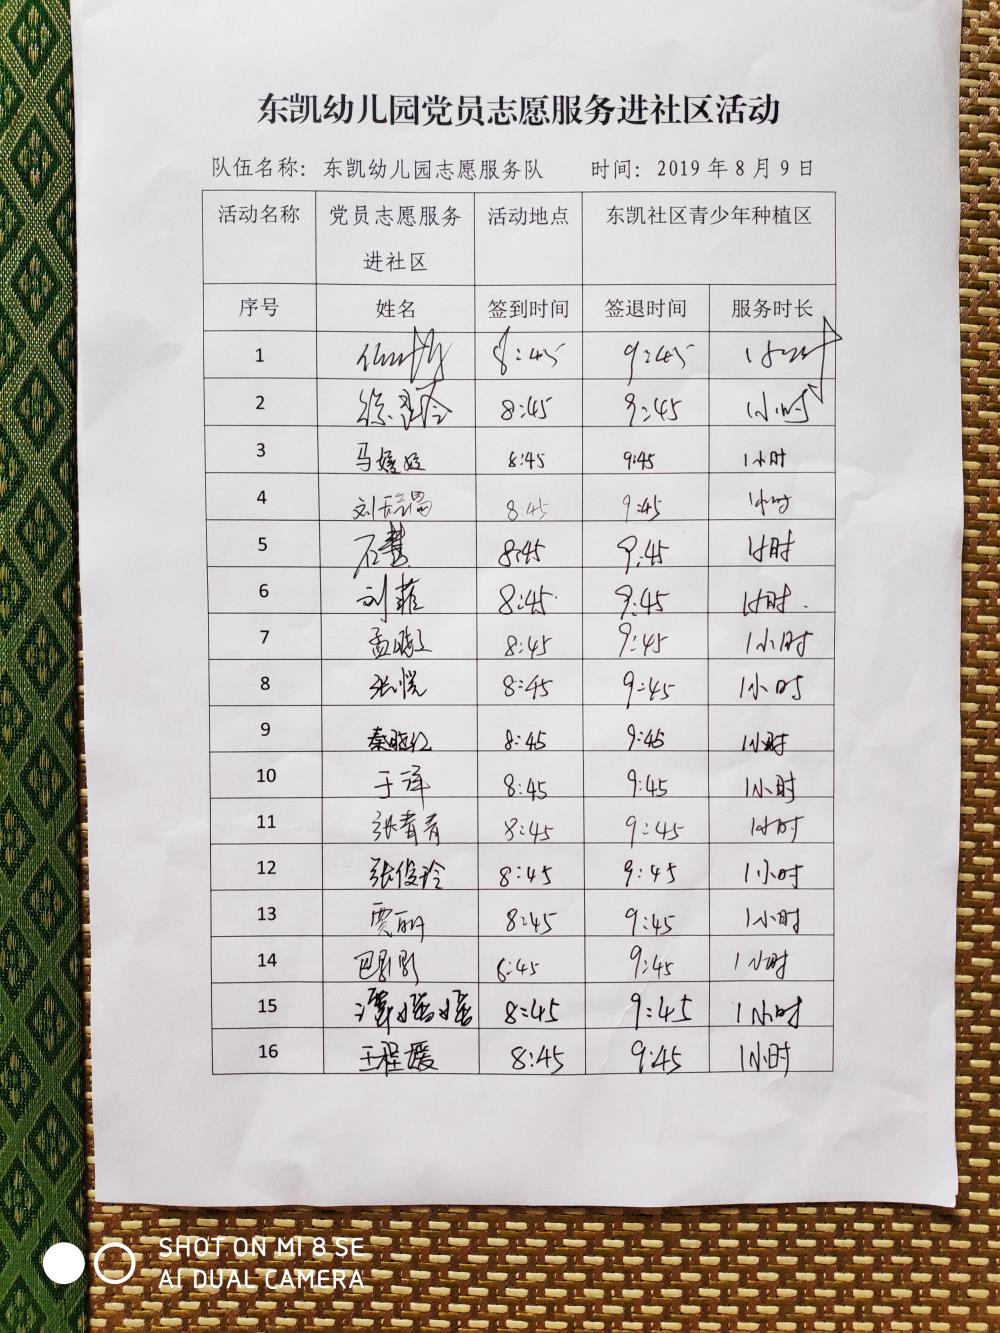 东凯幼儿园党员志愿服务进社区活动
队伍名称：东凯幼儿园志愿服务队 时间：2019年8月9日
活动名称 党员志愿服务进社区 活动地点 东凯社区青少年种植区
序号 姓名 签到时间 签退时间 服务时长
1 8:45 9:45 1小时
2 8:45 9:45 1小时
3 马媛媛 8:45 9:45 1小时
4 8:45 9:45 1小时
5 石慧 8:45 9:45 1小时
6 刘菲 8:45 9:45 1小时
7 8:45 9:45 1小时
8 张悦 8:45 9:45 1小时
9 秦晓红 8:45 9:45 1小时
10 于洋 8:45 9:45 1小时
11 张青青 8:45 9:45 1小时
12 张俊玲 8:45 9:45 1小时
13 贾丽 8:45 9:45 1小时
14 巴影影 8:45 9:45 1小时
15 谭婷婷 8:45 9:45 1小时
16 王程媛 8:45 9:45 1小时
SHOT ON MI 8 SE
AI DUAL CAMERA